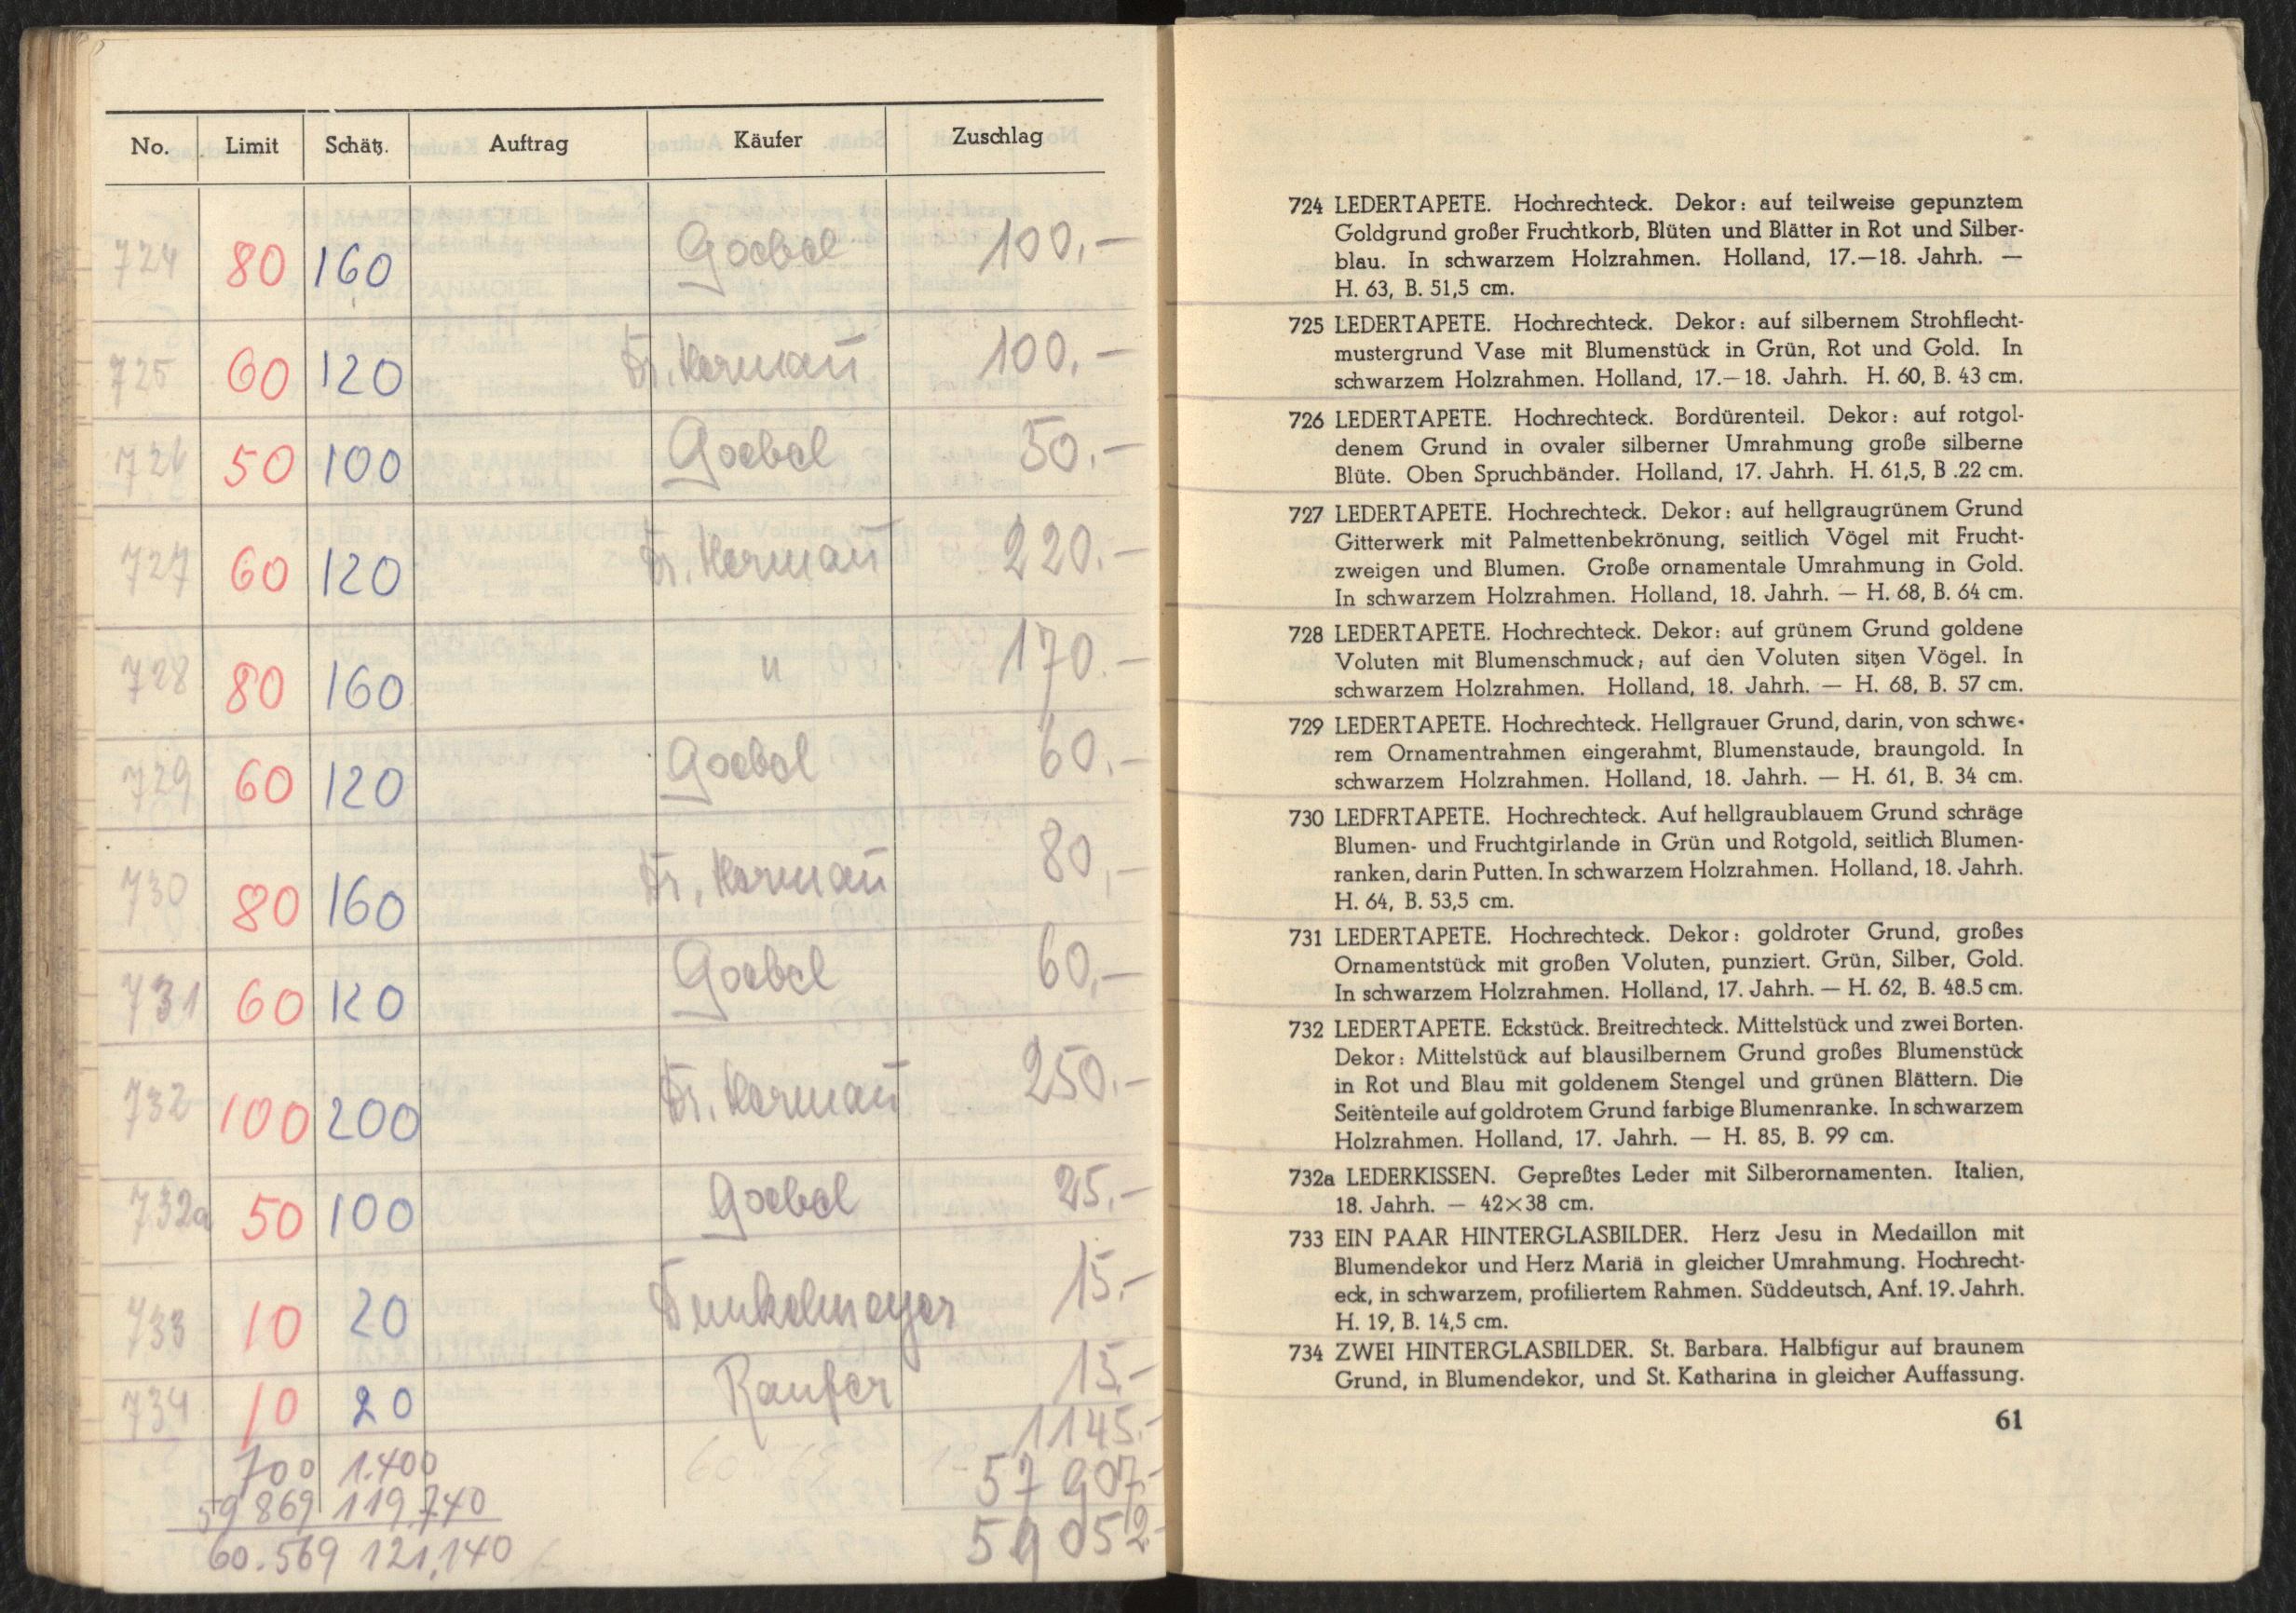 No. Limit Schätz. Auftrag Käufer Zuschlag
724 80 160 Goebel 100.–
725 60 120 Dr. Herman̄ 100.–
726 50 100 Goebel 50.–
727 60 120 Dr. Herman̄ 220.–
728 80 160 " 170.–
729 60 120 Goebel 60.–
730 80 160 Dr. Herman̄ 80,–
731 60 120 Goebel 60,–
732 100 200 Dr. Herman̄ 250.–
732a 50 100 Goebel 25.–
733 10 20 15.–
734 10 20 15.–
1145.–
700 1.400 57 907,–
59 869 119.740
60.569 121,140 59 052–
724 LEDERTAPETE. Hochrechteck. Dekor: auf teilweise gepunztem
Goldgrund großer Fruchtkorb, Blüten und Blätter in Rot und Silber-
blau. In schwarzem Holzrahmen. Holland, 17.—18. Jahrh. —
H. 63, B. 51,5 cm.
725 LEDERTAPETE. Hochrechteck. Dekor: auf silbernem Strohflecht-
mustergrund Vase mit Blumenstück in Grün, Rot und Gold. In
schwarzem Holzrahmen. Holland, 17.—18. Jahrh. H. 60, B. 43 cm.
726 LEDERTAPETE. Hochrechteck. Bordürenteil. Dekor: auf rotgol-
denem Grund in ovaler silberner Umrahmung große silberne
Blüte. Oben Spruchbänder. Holland, 17. Jahrh. H. 61,5, B .22 cm.
727 LEDERTAPETE. Hochrechteck. Dekor: auf hellgraugrünem Grund
Gitterwerk mit Palmettenbekrönung, seitlich Vögel mit Frucht-
zweigen und Blumen. Große ornamentale Umrahmung in Gold.
In schwarzem Holzrahmen. Holland, 18. Jahrh. — H. 68, B. 64 cm.
728 LEDERTAPETE. Hochrechteck. Dekor: auf grünem Grund goldene
Voluten mit Blumenschmuck; auf den Voluten sitzen Vögel. In
schwarzem Holzrahmen. Holland, 18. Jahrh. — H. 68, B. 57 cm.
729 LEDERTAPETE. Hochrechteck. Hellgrauer Grund, darin, von schwe-
rem Ornamentrahmen eingerahmt, Blumenstaude, braungold. In
schwarzem Holzrahmen. Holland, 18. Jahrh. — H. 61, B. 34 cm.
730 LEDFRTAPETE. Hochrechteck. Auf hellgraublauem Grund schräge
Blumen- und Fruchtgirlande in Grün und Rotgold, seitlich Blumen-
ranken, darin Putten. In schwarzem Holzrahmen. Holland, 18. Jahrh.
H. 64, B. 53,5 cm.
731 LEDERTAPETE. Hochrechteck. Dekor: goldroter Grund, großes
Ornamentstück mit großen Voluten, punziert. Grün, Silber, Gold.
In schwarzem Holzrahmen. Holland, 17. Jahrh. — H. 62, B. 48.5 cm.
732 LEDERTAPETE. Eckstück. Breitrechteck. Mittelstück und zwei Borten.
Dekor: Mittelstück auf blausilbernem Grund großes Blumenstück
in Rot und Blau mit goldenem Stengel und grünen Blättern. Die
Seitenteile auf goldrotem Grund farbige Blumenranke. In schwarzem
Holzrahmen. Holland, 17. Jahrh. — H. 85, B. 99 cm.
732a LEDERKISSEN. Gepreßtes Leder mit Silberornamenten. Italien,
18. Jahrh. — 42×38 cm.
733 EIN PAAR HINTERGLASBILDER. Herz Jesu in Medaillon mit
Blumendekor und Herz Mariä in gleicher Umrahmung. Hochrecht-
eck, in schwarzem, profiliertem Rahmen. Süddeutsch, Anf. 19. Jahrh.
H. 19, B. 14,5 cm.
734 ZWEI HINTERGLASBILDER. St. Barbara. Halbfigur auf braunem
Grund, in Blumendekor, und St. Katharina in gleicher Auffassung.
61